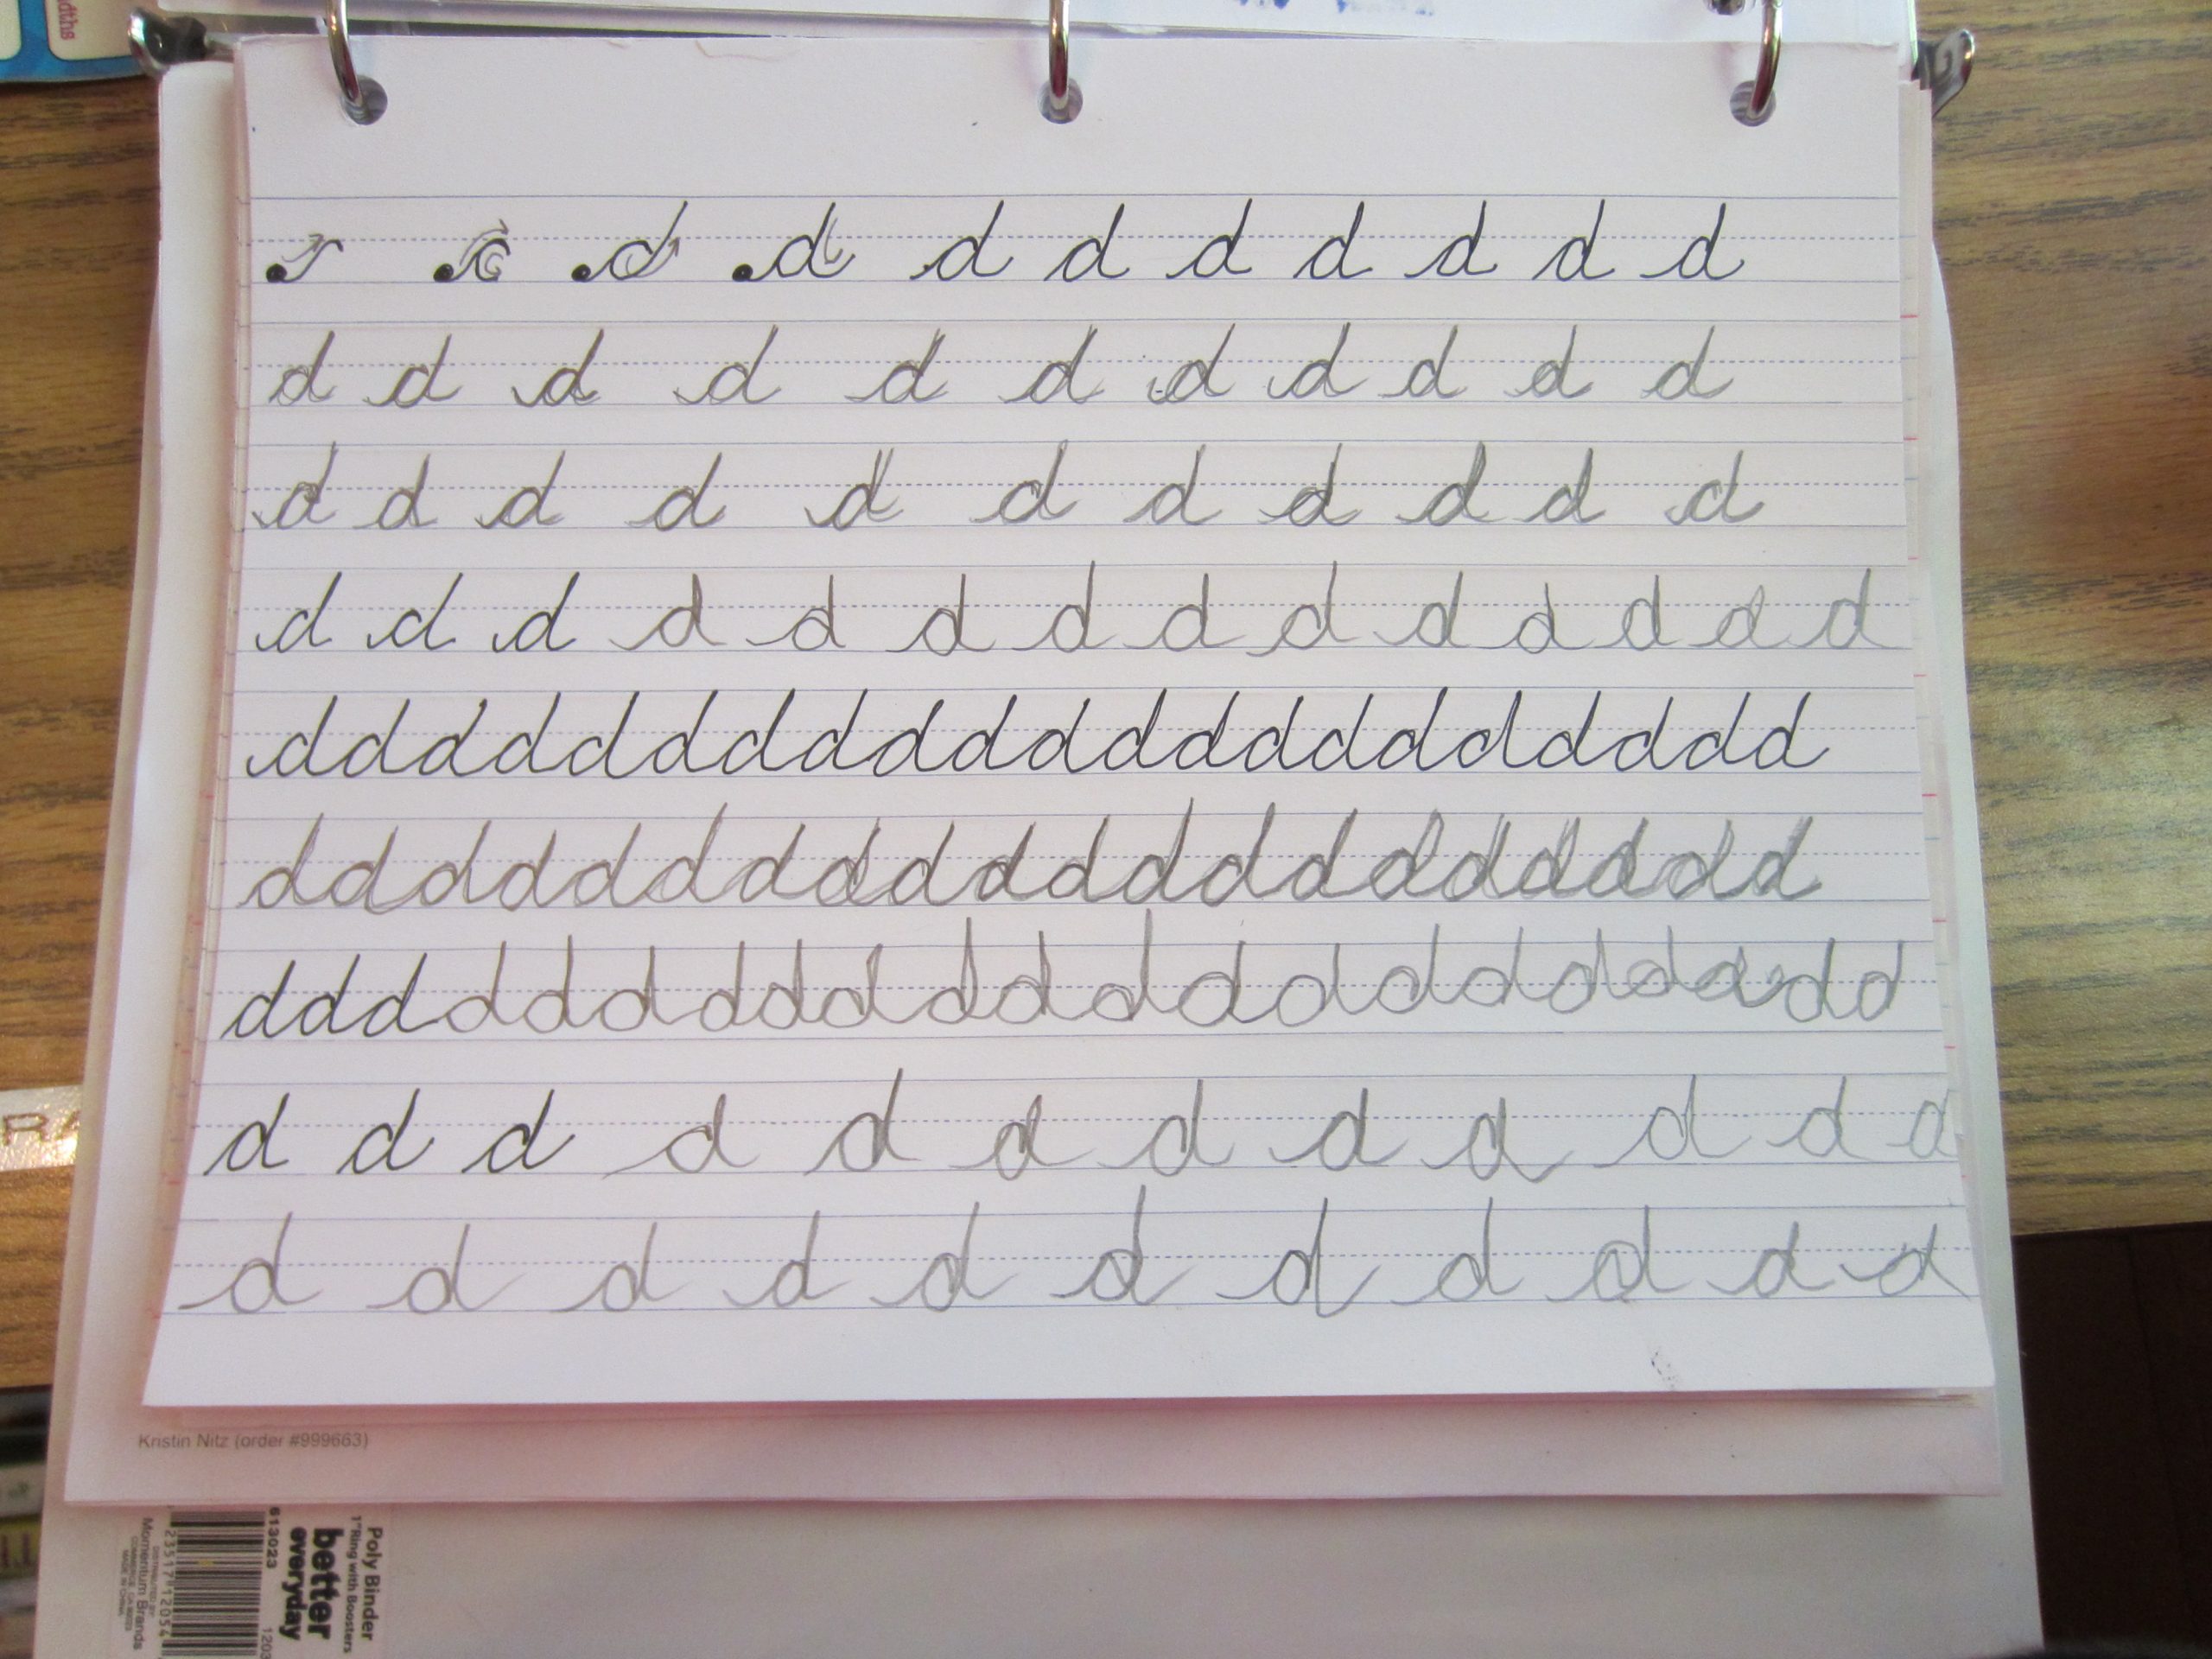 d d d d d d d d d
d d d d d d d d d d d
d d d d d d d d d d d
d d d d d d d d d d d d d d
ddddddddddddddddddddd
dddddddddddddddddddd
ddddddddddddddddddddd
d d d d d d d d d d d d
d d d d d d d d d d d
Kristin Nitz (order #999663)
Poly Binder
1"Ring with Boosters
better
everyday
613023
1203
DISTRIBUTED BY
Momentum Brands
COMMERCE, CA 90023
MADE IN CHINA